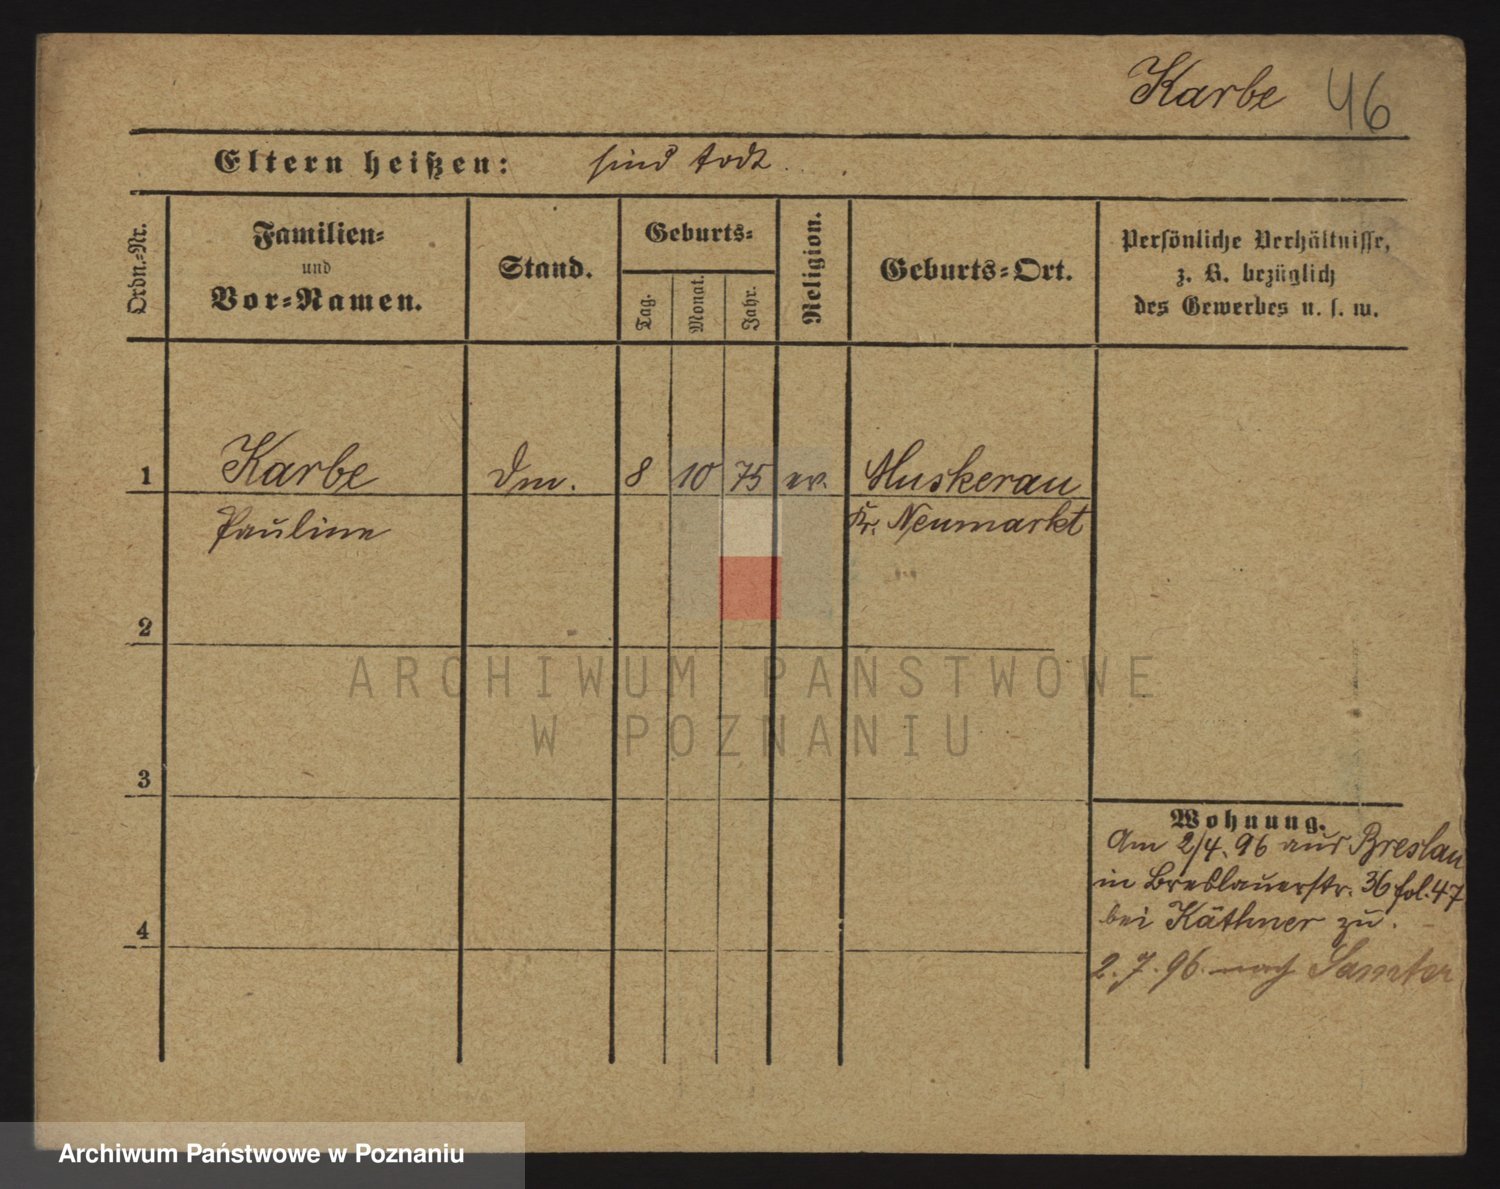 Karbe 46
Eltern heißen: sind todt.
Ordn.-Nr.
Familien-
und
Vor-Namen.
Stand.
Geburts-
Tag.
Monat.
Jahr.
Religion.
Geburts-Ort.
Persönliche Verhältnisse,
z. B. bezüglich
des Gewerbes u. s. w.
1 Karbe Dm. 8 10 75 ev. Muskerau
Pauline Kr. Neumarkt
2
3
4
Wohnung.
Am 2/4. 96 aus Breslau
in Breslauerstr. 36 fol. 47
bei Käthner zu.
2. 7. 96. nach Samter
ARCHIWUM PAŃSTWOWE
W POZNANIU
Archiwum Państwowe w Poznaniu